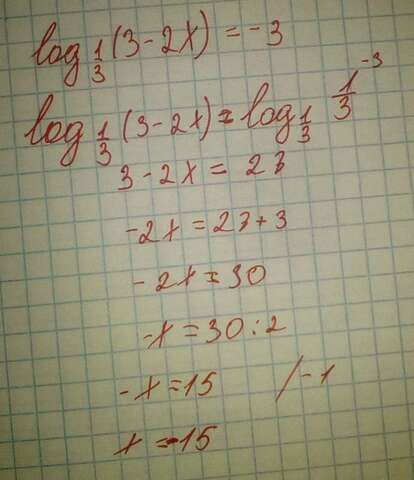 log 1/3 (3-2x) = -3
log 1/3 (3-2x) = log 1/3 1/3 -3
3-2x = 27
-2x = 27+3
-2x = 30
-x = 30:2
-x = 15 /-1
x = -15